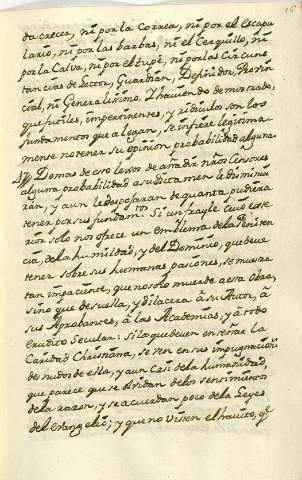 da crecer, ni por la Correa, ni por el Escapu
lario, ni por las barbas, ni el Cerquillo, ni
por la Calva, ni por el tupè, ni por las Circuns
tancias de Lector, Guardian, Definidor, Provin
cial, ni Generalisimo. Y haviendo demostrado,
que futiles, impertinentes, y ridiculos son los
fundamentos que alegan, se infiere legitima
mente no tener su opinion probabilidad alguna.
Demas de esto lexos de añadir nros Censores
alguna probabilidad a su dictamen le disminui
ràn, y aun le despojaran de quanta pudiera
tener por sus fundamtos. Si un frayle cuio exte
rior solo nos ofrece un Emblema de la Peniten
cia, de la humildad, y del Dominio, que deve
tener sobre sus humanas pasiones, se muestra
tan impaciente, que no solo muerde aesta Obra,
sino que desuella, y dilacera à su Autor, à
sus Aprobantes, à las Academias, y à todo
erudito Secular: Si lo que deven enseñar la
Caridad Christiana, se ven en sus impugnaciones
desnudos de ella, y aun casi de la humanidad,
que parece que se olvidan de los sentimientos
de la razon, y se acuerdan poco de la Leyes
del Evangelio; y que no visten el havito, q